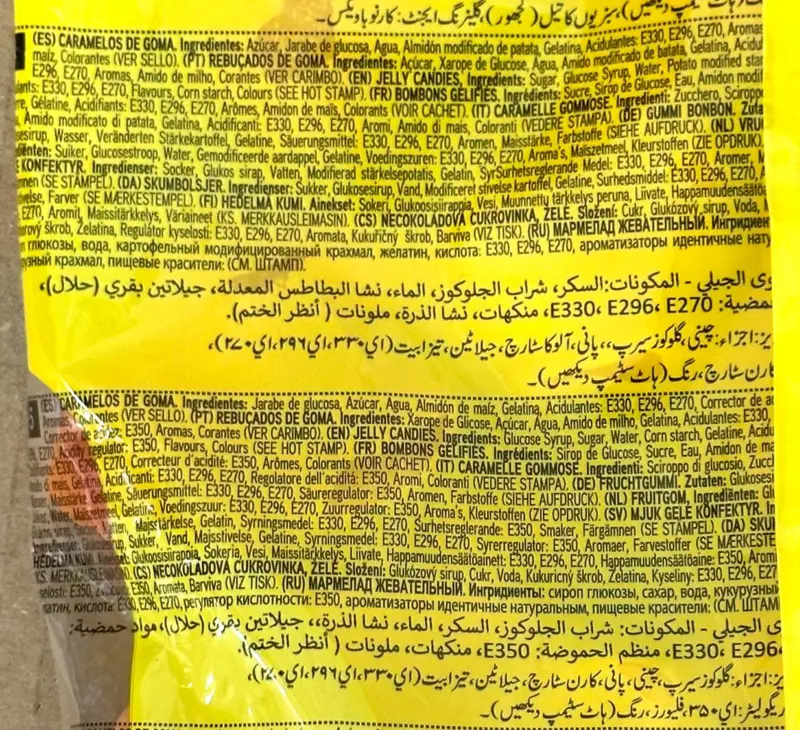 سبزیوں کا تیل (کھجور)، گلیزنگ ایجنٹ: کارنوبا ویکس۔
(ES) CARAMELOS DE GOMA. Ingredientes: Azúcar, Jarabe de glucosa, Agua, Almidón modificado de patata, Gelatina, Acidulantes: E330, E296, E270, Aromas
maíz, Colorantes (VER SELLO). (PT) REBUÇADOS DE GOMA. Ingredientes: Açúcar, Xarope de Glucose, Água, Amido modificado de batata, Gelatina, Acidu
E296, E270, Aromas, Amido de milho, Corantes (VER CARIMBO). (EN) JELLY CANDIES, Ingredients: Sugar, Glucose Syrup, Water, Potato modified star
ants: E330, E296, E270, Flavours, Corn starch, Colours (SEE HOT STAMP). (FR) BOMBONS GÉLIFIÉS. Ingrédients: Sucre, Sirop de Glucose, Eau, Amidon modif
re, Gélatine, Acidifiants: E330, E296, E270, Arômes, Amidon de maïs, Colorants (VOIR CACHET). (IT) CARAMELLE GOMMOSE. Ingredienti: Zucchero, Sciropp
Amido modificato di patata, Gelatina, Acidificanti: E330, E296, E270, Aromi, Amido di mais, Coloranti (VEDERE STAMPA). (DE) GUMMI BONBON. Zuta
sesirup, Wasser, Veränderten Stärkekartoffel, Gelatine, Säuerungsmittel: E330, E296, E270, Aromen, Maisstärke, Farbstoffe (SIEHE AUFDRUCK). (NL) VRU
ënten: Suiker, Glucosestroop, Water, Gemodificeerde aardappel, Gelatine, Voedingszuren: E330, E296, E270, Aroma's, Maïszetmeel, Kleurstoffen (ZIE OPDRUK).
KONFEKTYR. Ingredienser: Socker, Glukos sirap, Vatten, Modifierad stärkelsepotatis, Gelatin, SyrSurhetsreglerande Medel: E330, E296, E270, Aromer, M
nen (SE STÄMPEL). (DA) SKUMBOLSJER. Ingredienser: Sukker, Glukosesirup, Vand, Modificeret stivelse kartoffel, Gelatine, Surhedsmiddel: E330, E296, E270, A
velse, Farver (SE MÆRKESTEMPEL). (FI) HEDELMÄ KUMI. Ainekset: Sokeri, Glukoosisiirappia, Vesi, Muunnettu tärkkelys peruna, Liivate, Happamuudensäätöa
E270, Aromit, Maissitärkkelys, Väriaineet (KS. MERKKAUSLEIMASIN). (CS) NEČOKOLÁDOVÁ CUKROVINKA, ŽELÉ. Složení: Cukr, Glukózový sirup, Voda, M
rový škrob, Želatina, Regulátor kyselosti: E330, E296, E270, Aromata, Kukuřičný škrob, Barviva (VIZ TISK). (RU) МАРМЕЛАД ЖЕВАТЕЛЬНЫЙ. Ингредиен
глюкозы, вода, картофельный модифицированный крахмал, желатин, кислота: E330, E296, E270, ароматизаторы идентичные нату
узный крахмал, пищевые красители: (СМ. ШТАМП).
وى الجيلي - المكونات:السكر، شراب الجلوكوز، الماء، نشا البطاطس المعدلة، جيلاتين بقري (حلال)،
حمضية: E330، E296، E270، منكهات، نشا الذرة، ملونات ( أنظر الختم).
یز:اجزاء: چینی، گلوکوز سیرپ،، پانی، آلو کا سٹارچ، جیلاٹین، تیزابیت (اي۳۳۰،اي۲۹٦،اي۲۷۰)،
کارن سٹارچ، رنگ (ہاٹ سٹیمپ دیکھیں)۔
(ES) CARAMELOS DE GOMA. Ingredientes: Jarabe de glucosa, Azúcar, Agua, Almidón de maíz, Gelatina, Acidulantes: E330, E296, E270, Corrector de ac
Aromas, Colorantes (VER SELLO). (PT) REBUÇADOS DE GOMA. Ingredientes: Xarope de Glicose, Açúcar, Agua, Amido de milho, Gelatina, Acidulantes: E330,
Corrector de acidez: E350, Aromas, Corantes (VER CARIMBO). (EN) JELLY CANDIES, Ingredients: Glucose Syrup, Sugar, Water, Corn starch, Gelatine, Acidu
E270, Acidity regulator: E350, Flavours, Colours (SEE HOT STAMP). (FR) BOMBONS GÉLIFIÉS. Ingrédients: Sirop de Glucose, Sucre, Eau, Amidon de ma
E330, E296, E270, Correcteur d'acidité: E350, Arômes, Colorants (VOIR CACHET). (IT) CARAMELLE GOMMOSE. Ingredienti: Sciroppo di glucosio, Zucc
do di mais, Gelatina, Acidificanti: E330, E296, E270, Regolatore dell'aciditá: E350, Aromi, Coloranti (VEDERE STAMPA). (DE) FRUCHTGUMMI. Zutaten: Glukosesi
Maisstärke, Gelatine, Säuerungsmittel: E330, E296, E270, Säureregulator: E350, Aromen, Farbstoffe (SIEHE AUFDRUCK). (NL) FRUITGOM, Ingrediënten: Gl
Water, Maïszetmeel, Gelatine, Voedingszuur: E330, E296, E270, Zuurregulator: E350, Aroma's, Kleurstoffen (ZIE OPDRUK). (SV) MJUK GELÉ KONFEKTYR. In
Vatten, Maisstärkelse, Gelatin, Syrningsmedel: E330, E296, E270, Surhetsreglerande: E350, Smaker, Färgämnen (SE STÄMPEL). (DA) SKUM
Ingredienser: Glukosesirup, Sukker, Vand, Majsstivelse, Gelatine, Syrningsmedel: E330, E296, E270, Syrerregulator: E350, Aromaer, Farvestoffer (SE MÆRKESTE
HEDELMÄ KUMI. Ainekset: Glukoosisiirappia, Sokeria, Vesi, Maissitärkkelys, Liivate, Happamuudensäätöainett: E330, E296, E270, Happamuudensäätöaine: E350, Aromi
(KS. MERKKAUSLEIMASIN). (CS) NEČOKOLÁDOVÁ CUKROVINKA, ŽELÉ. Složení: Glukózový sirup, Cukr, Voda, Kukuřicný škrob, Želatina, Kyseliny: E330, E296, E27
E350, Aromata, Barviva (VIZ TISK). (RU) МАРМЕЛАД ЖЕВАТЕЛЬНЫЙ. Ингредиенты: сироп глюкозы, сахар, вода, кукурузный
атин, кислота: E330, E296, E270, регулятор кислотности: E350, ароматизаторы идентичные натуральным, пищевые красители: (СМ. ШТАМ
وى الجيلي - المكونات: شراب الجلوكوز، السكر، الماء، نشا الذرة،، جيلاتين بقري (حلال)، مواد حمضية:
E330، E296، منظم الحموضة: E350، منكهات، ملونات ( أنظر الختم).
یز:اجزاء: گلوکوز سیرپ، چینی، پانی، کارن سٹارچ، جیلاٹین، تیزابیت (اي۳۳۰،اي۲۹٦،اي۲۷۰)،
ریگولیٹر: اي۳۵۰، فلیورز، رنگ (ہاٹ سٹیمپ دیکھیں)۔